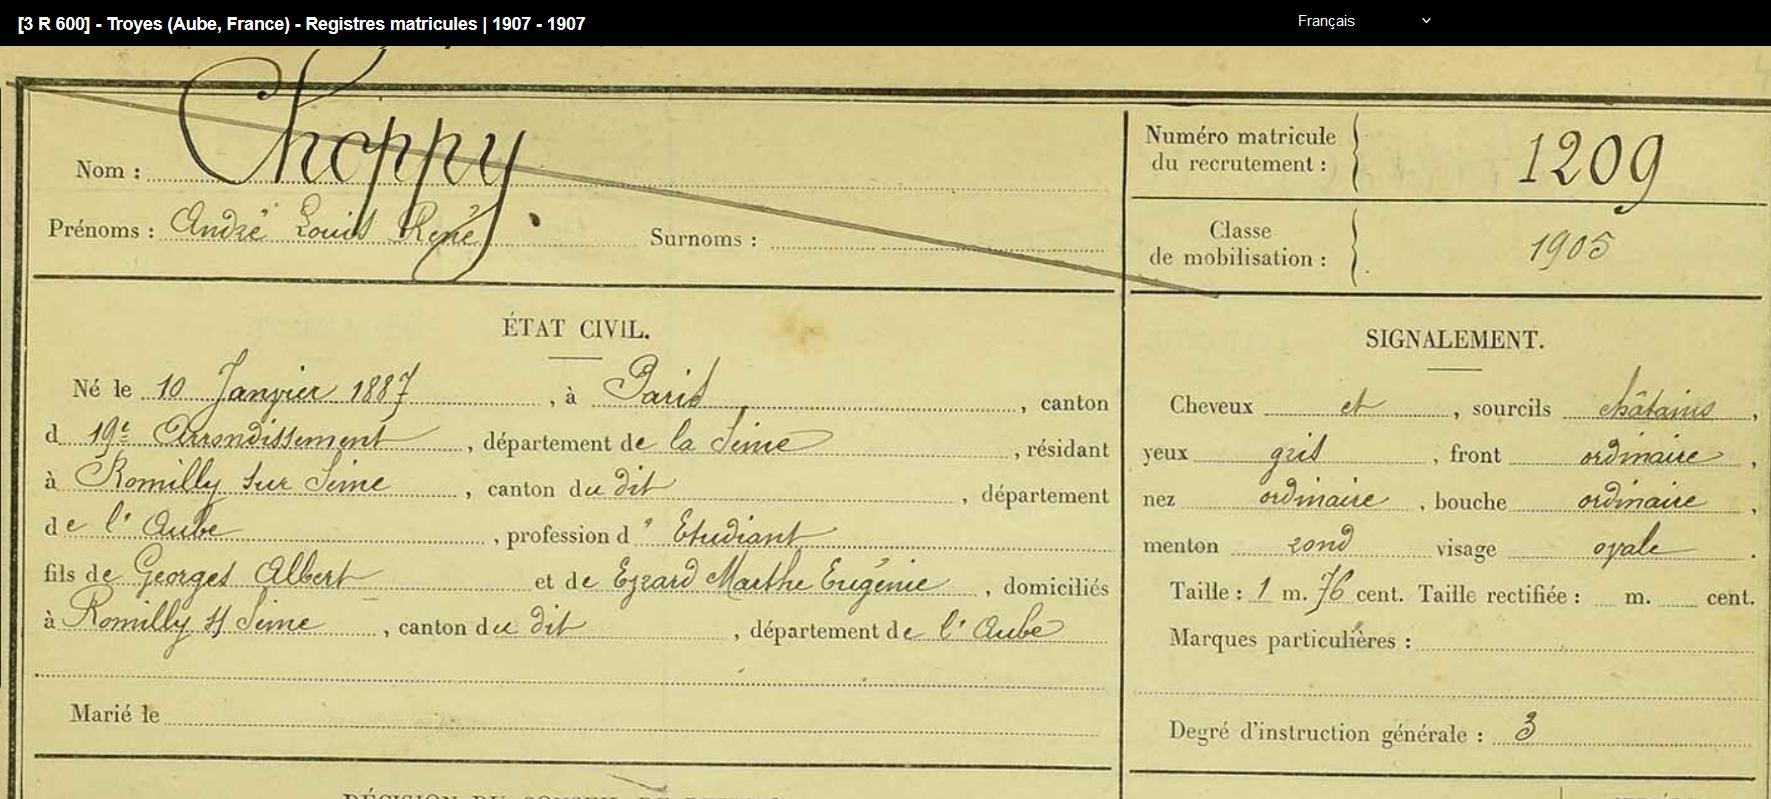 [3 R 600] - Troyes (Aube, France) - Registres matricules | 1907 - 1907
Français
Nom : Choppy
Prénoms : André Louis René Surnoms :
Numéro matricule du recrutement : 1209
Classe de mobilisation : 1905
ÉTAT CIVIL.
Né le 10 Janvier 1887, à Paris, canton
d 19e Arrondissement, département de la Seine, résidant
à Romilly sur Seine, canton du dit, département
de l'Aube, profession d'Etudiant
fils de Georges Albert et de Ezard Marthe Eugénie, domiciliés
à Romilly s/ Seine, canton du dit, département de l'Aube
Marié le
SIGNALEMENT.
Cheveux et, sourcils châtains,
yeux gris, front ordinaire,
nez ordinaire, bouche ordinaire,
menton rond visage ovale.
Taille : 1 m. 76 cent. Taille rectifiée : m. cent.
Marques particulières :
Degré d'instruction générale : 3